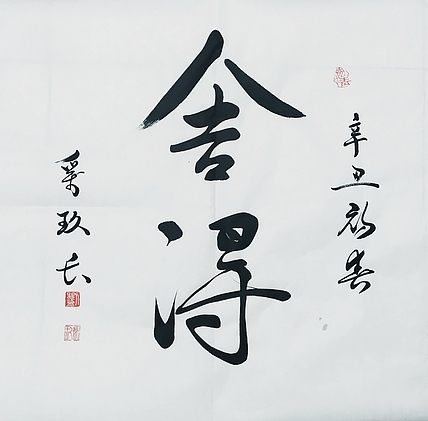 辛丑初春
舍得
玖长